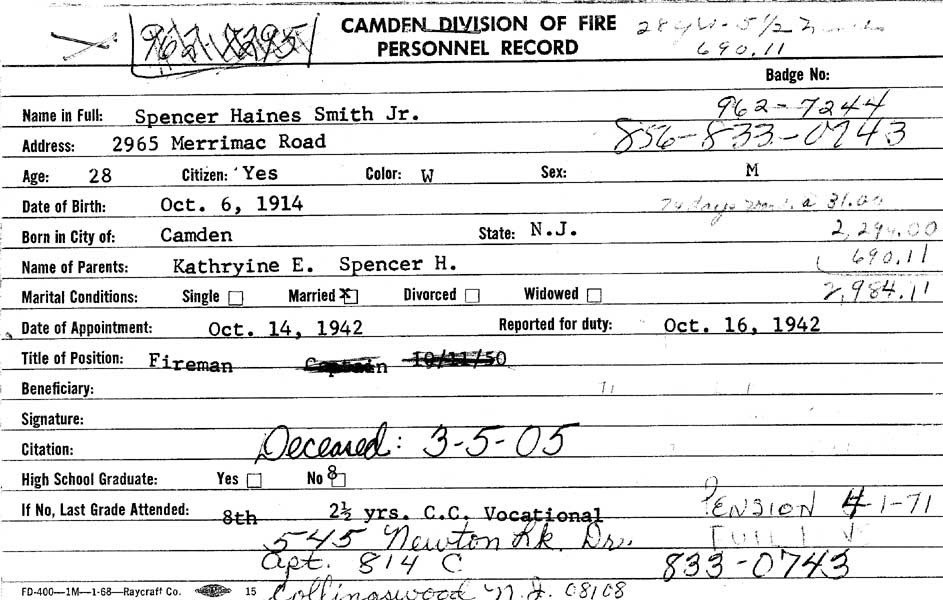 CAMDEN DIVISION OF FIRE
PERSONNEL RECORD
690.11
Badge No:
962-7244
Name in Full: Spencer Haines Smith Jr.
856-833-0743
Address: 2965 Merrimac Road
Age: 28 Citizen: Yes Color: W Sex: M
Date of Birth: Oct. 6, 1914 days @ 31.00
Born in City of: Camden State: N.J. 2,294.00
Name of Parents: Kathryine E. Spencer H. 690.11
Marital Conditions: Single Married x Divorced Widowed 2,984.11
Date of Appointment: Oct. 14, 1942 Reported for duty: Oct. 16, 1942
Title of Position: Fireman Captain 10/11/50
Beneficiary:
Signature:
Citation: Deceased: 3-5-05
High School Graduate: Yes No 8
If No, Last Grade Attended: 8th 2½ yrs. C.C. Vocational PENSION 4-1-71
545 Newton Lk. Dr.
Apt. 814 C 833-0743
FD-400—1M—1-68—Raycraft Co. 15 Collingswood N.J. 08108